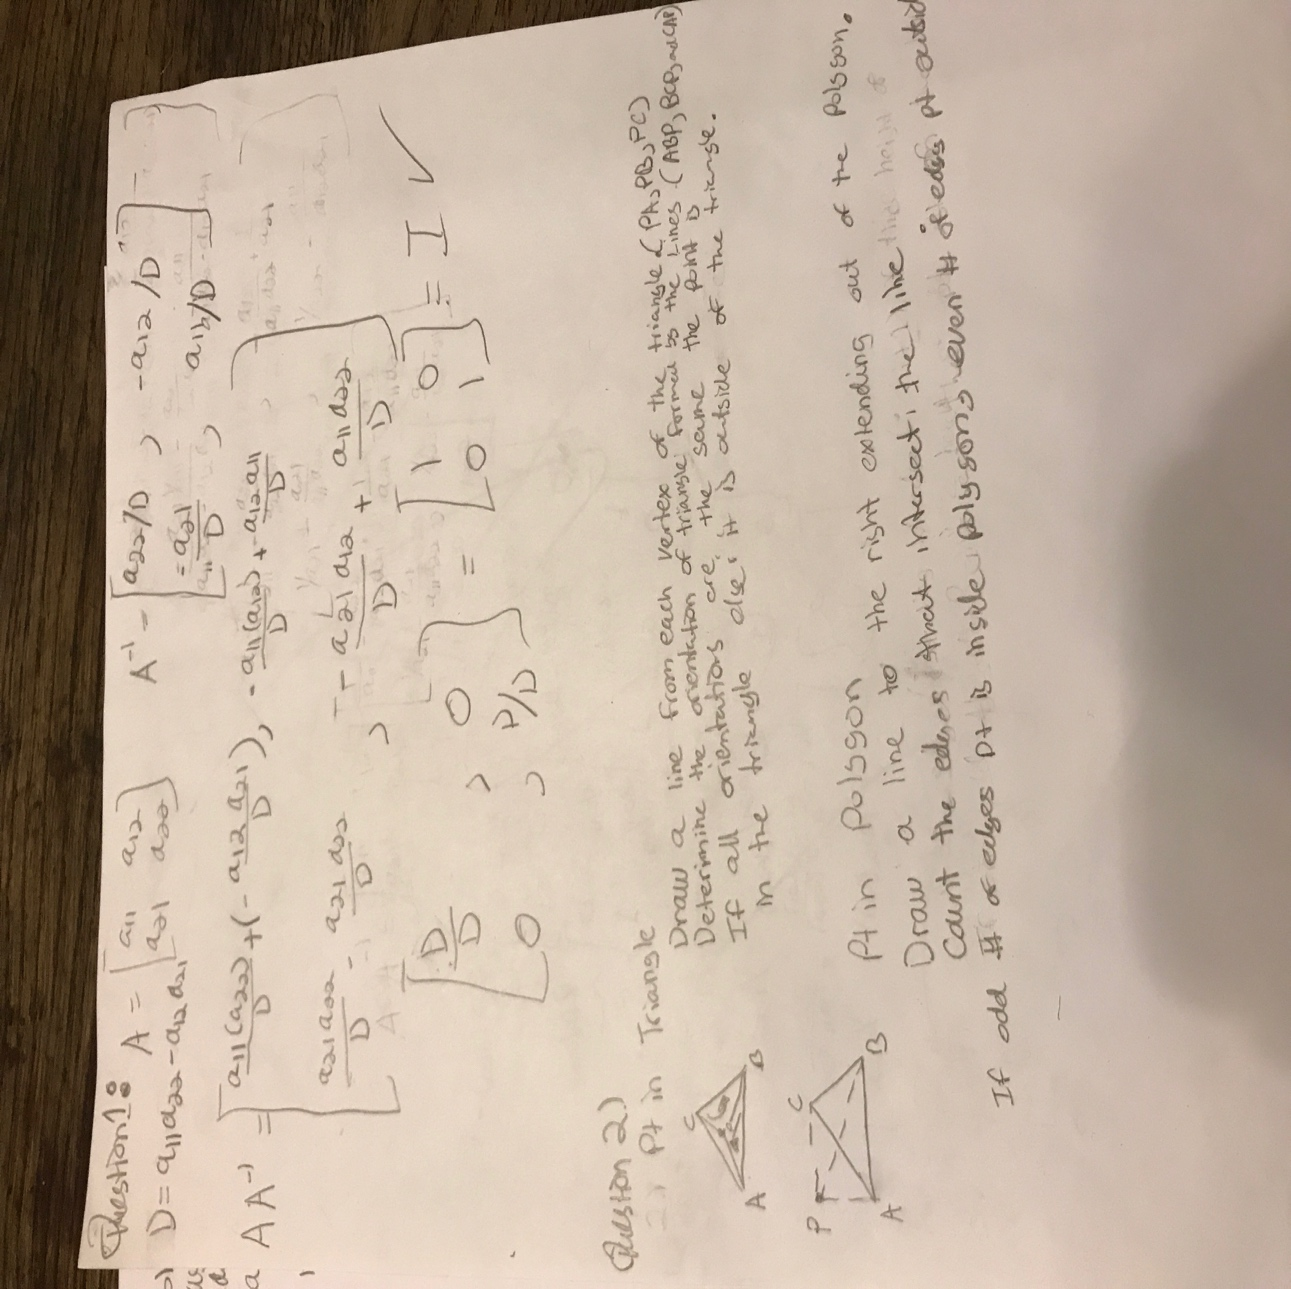 Question 1:
A = [a11 a12
a21 a22]
A⁻¹ - [a22/D , -a12/D
= -a21/D , a11/D]
D = a11a22 - a12a21
AA⁻¹ = [a11(a22)/D + (-a12a21/D), -a11(a12)/D + a12a11/D
a21a22/D - a21a22/D , -a21a12/D + a11a22/D]
[D/D , 0
0 , P/D] = [1 0
0 1] = I ✓
Question 2)
Pt in Triangle
Draw a line from each vertex of the triangle (PA, PB, PC)
Determine the orientation of triangle formed by the lines. (ABP, BCP, and CAP)
If all orientations are the same the point is
in the triangle else it is outside of the triangle.
C
A B
P C
A B
Pt in Polygon
Draw a line to the right extending out of the polygon.
Count the edges that intersect the line
If odd # of edges pt is inside polygon, even # of edges pt outsid